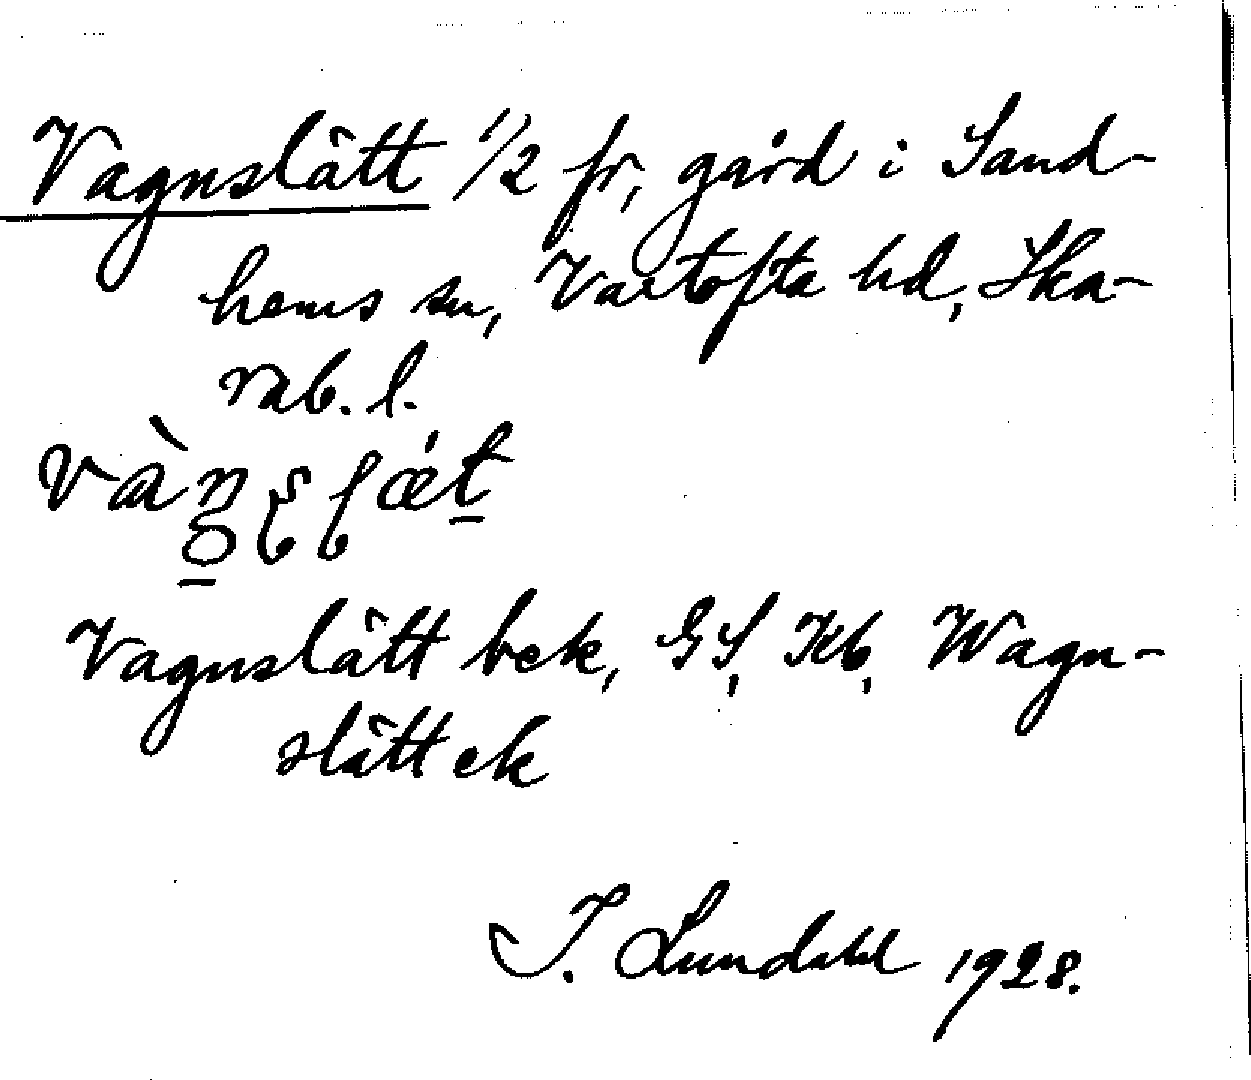 Vagnslätt 1/2 fr, gård i Sand-
hems sn, Vartofta hd, Ska-
rab. l.
Vagnslätt bek, GS, Kb, Wagn-
slätt ek
I. Lundahl 1928.